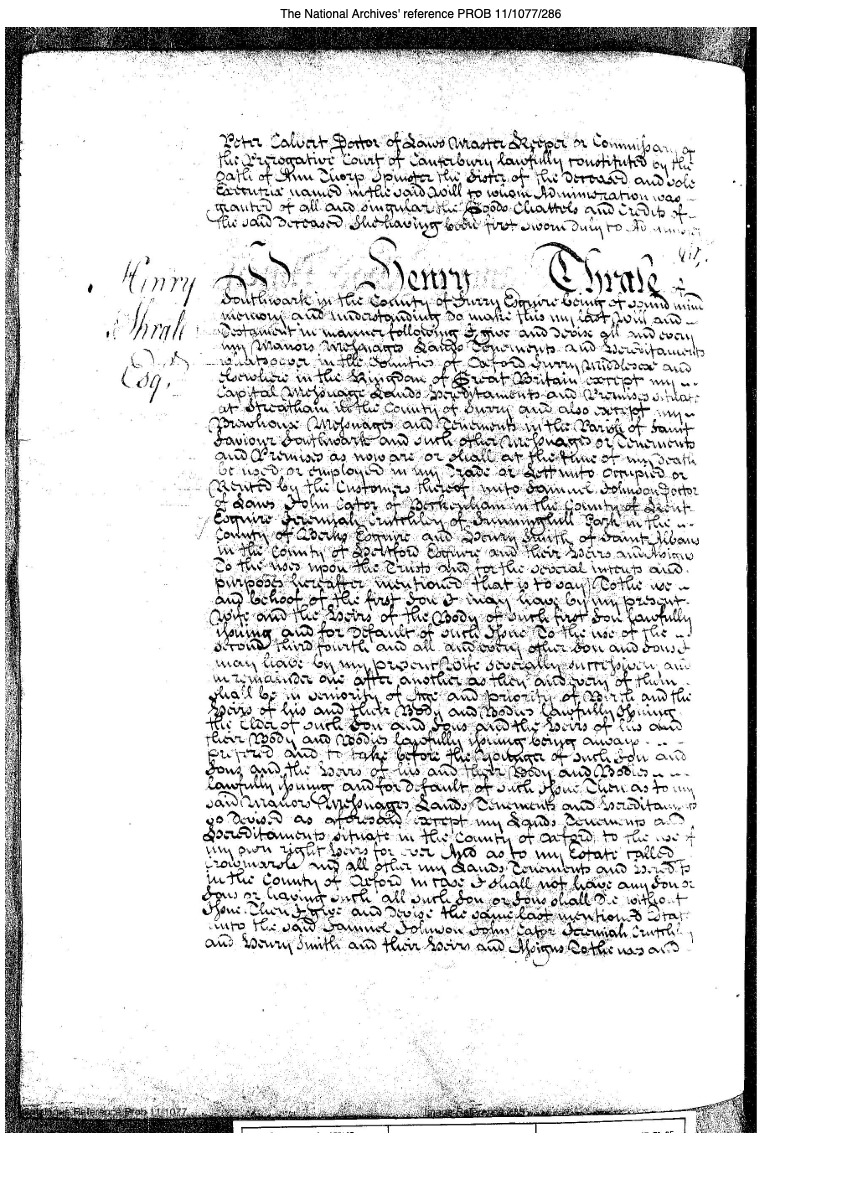 The National Archives' reference PROB 11/1077/286
Peter Calvert Doctor of Laws Master Keeper or Commissary of
the Prerogative Court of Canterbury lawfully constituted by the
Oath of Ann Thorp Spinster the Sister of the Deceased and sole
Executrix named in the said Will to whom Administration was
granted of all and singular the Goods Chattels and Credits of
the said Deceased She having been first sworn duly to Administer
Henry
Thrale
Esqr.
I Henry Thrale of
Southwark in the County of Surry Esquire being of sound mind
memory and understanding do make this my last Will and
Testament in manner following I give and devise all and every
my Manors Messuages Lands Tenements and Hereditaments
whatsoever in the Counties of Oxford Surry Middlesex and
elsewhere in the Kingdom of Great Britain except my
Capital Messuage Lands Hereditaments and Premises situate
at Streatham in the County of Surry and also except my
Brewhouse Messuages and Tenements in the Parish of Saint
Saviour Southwark and such other Messuages or Tenements
and Premises as now are or shall at the time of my Death
be used or employed in my Trade or Lett unto occupied or
Rented by the Customers thereof unto Samuel Johnson Doctor
of Laws John Cator of Beckenham in the County of Kent
Esquire Jeremiah Crutchley of Sunninghill Park in the
County of Berks Esquire and Henry Smith of Saint Albans
in the County of Hertford Esquire and their Heirs and Assigns
To the uses upon the Trusts and for the several intents and
purposes hereafter mentioned that is to say To the use
and behoof of the first Son I may have by my present
Wife and the Heirs of the Body of such first Son lawfully
issuing and for default of such Issue To the use of the
second third fourth and all and every other Son and Sons I
may have by my present Wife severally successively and
in remainder one after another as they and every of them
shall be in seniority of Age and priority of Birth and the
Heirs of his and their Body and Bodies lawfully issuing
the Elder of such Son and Sons and the Heirs of his and
their Body and Bodies lawfully issuing being always
preferred and to take before the Younger of such Son and
Sons and the Heirs of his and their Body and Bodies
lawfully issuing and for default of such Issue Then as to my
said Manors Messuages Lands Tenements and Hereditaments
so devised as aforesaid except my Lands Tenements and
Hereditaments situate in the County of Oxford to the use of
my own right Heirs for ever And as to my Estate called
Crowmarsh and all other my Lands Tenements and Heredits
in the County of Oxford in case I shall not have any Son or
Sons or having such all such Son or Sons shall die without
Issue Then I give and devise the same last mentioned Estate
unto the said Samuel Johnson John Cator Jeremiah Crutchley
and Henry Smith and their Heirs and Assigns To the uses and
Reference Prob 11/1077